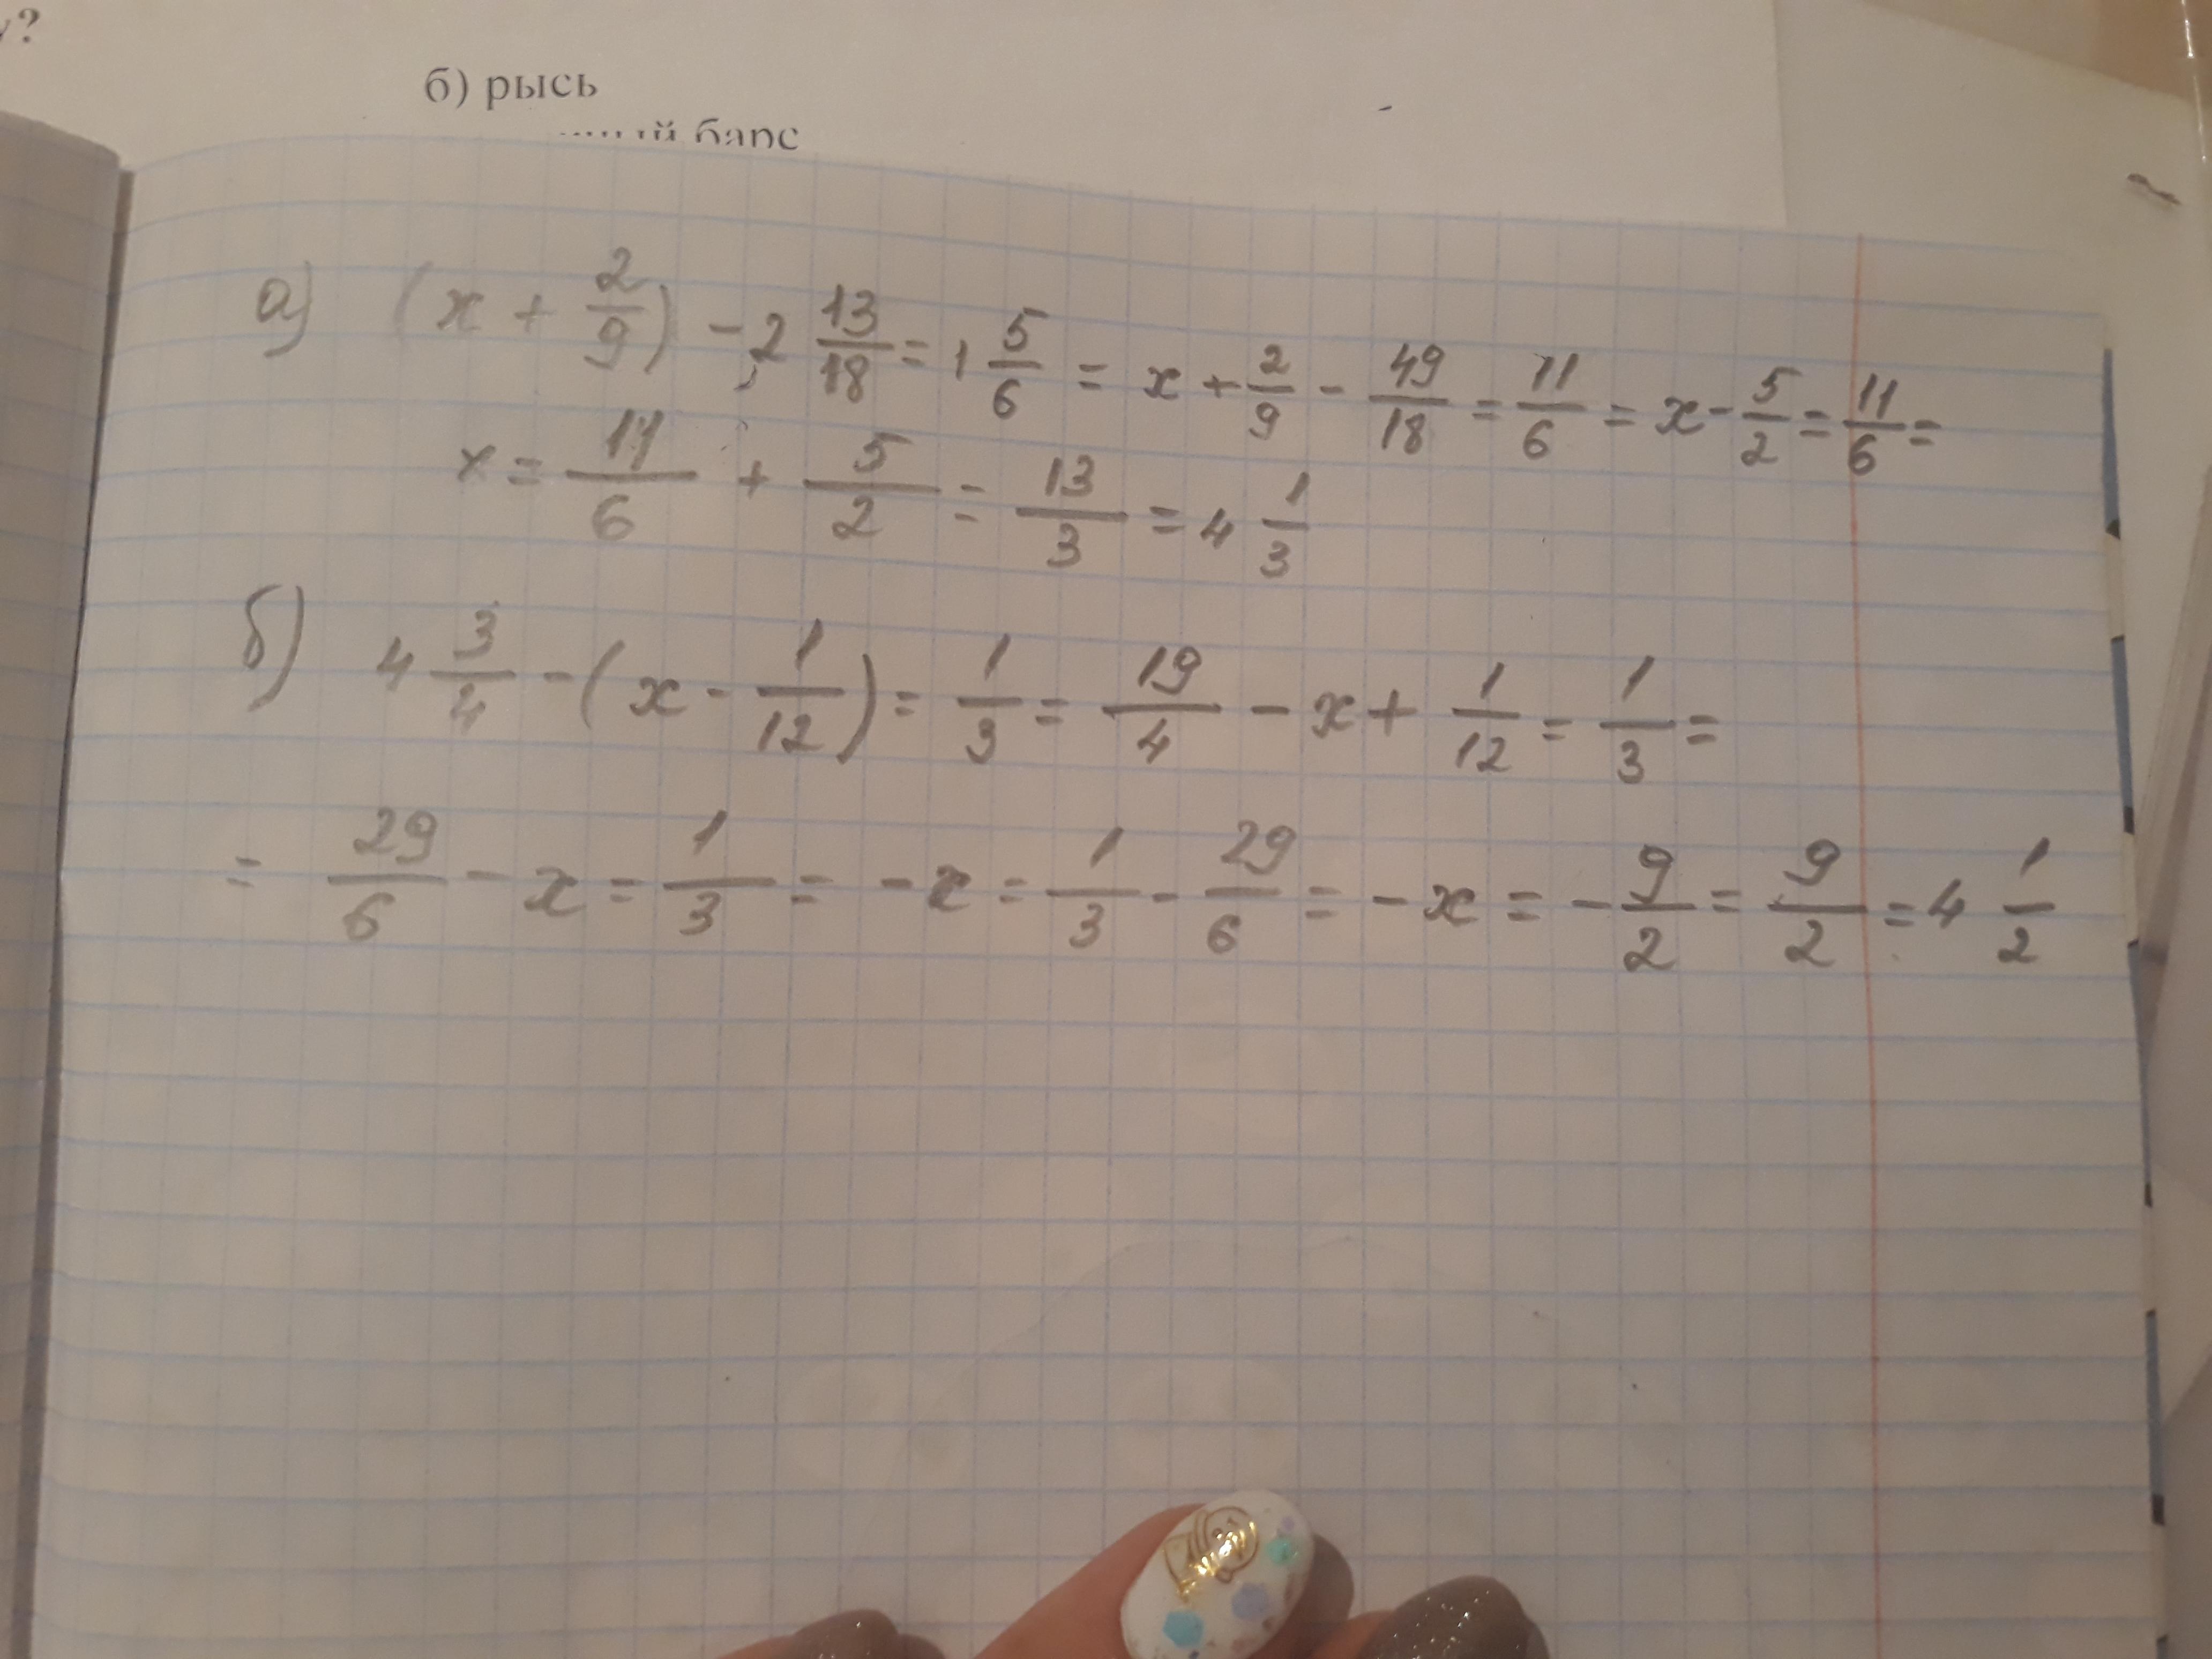 у?
б) рысь
барс
а) (x + 2/9) - 2 13/18 = 1 5/6 = x + 2/9 - 49/18 = 11/6 = x - 5/2 = 11/6 =
x = 11/6 + 5/2 = 13/3 = 4 1/3
б) 4 3/4 - (x - 1/12) = 1/3 = 19/4 - x + 1/12 = 1/3 =
= 29/6 - x = 1/3 = -x = 1/3 - 29/6 = -x = -9/2 = 9/2 = 4 1/2